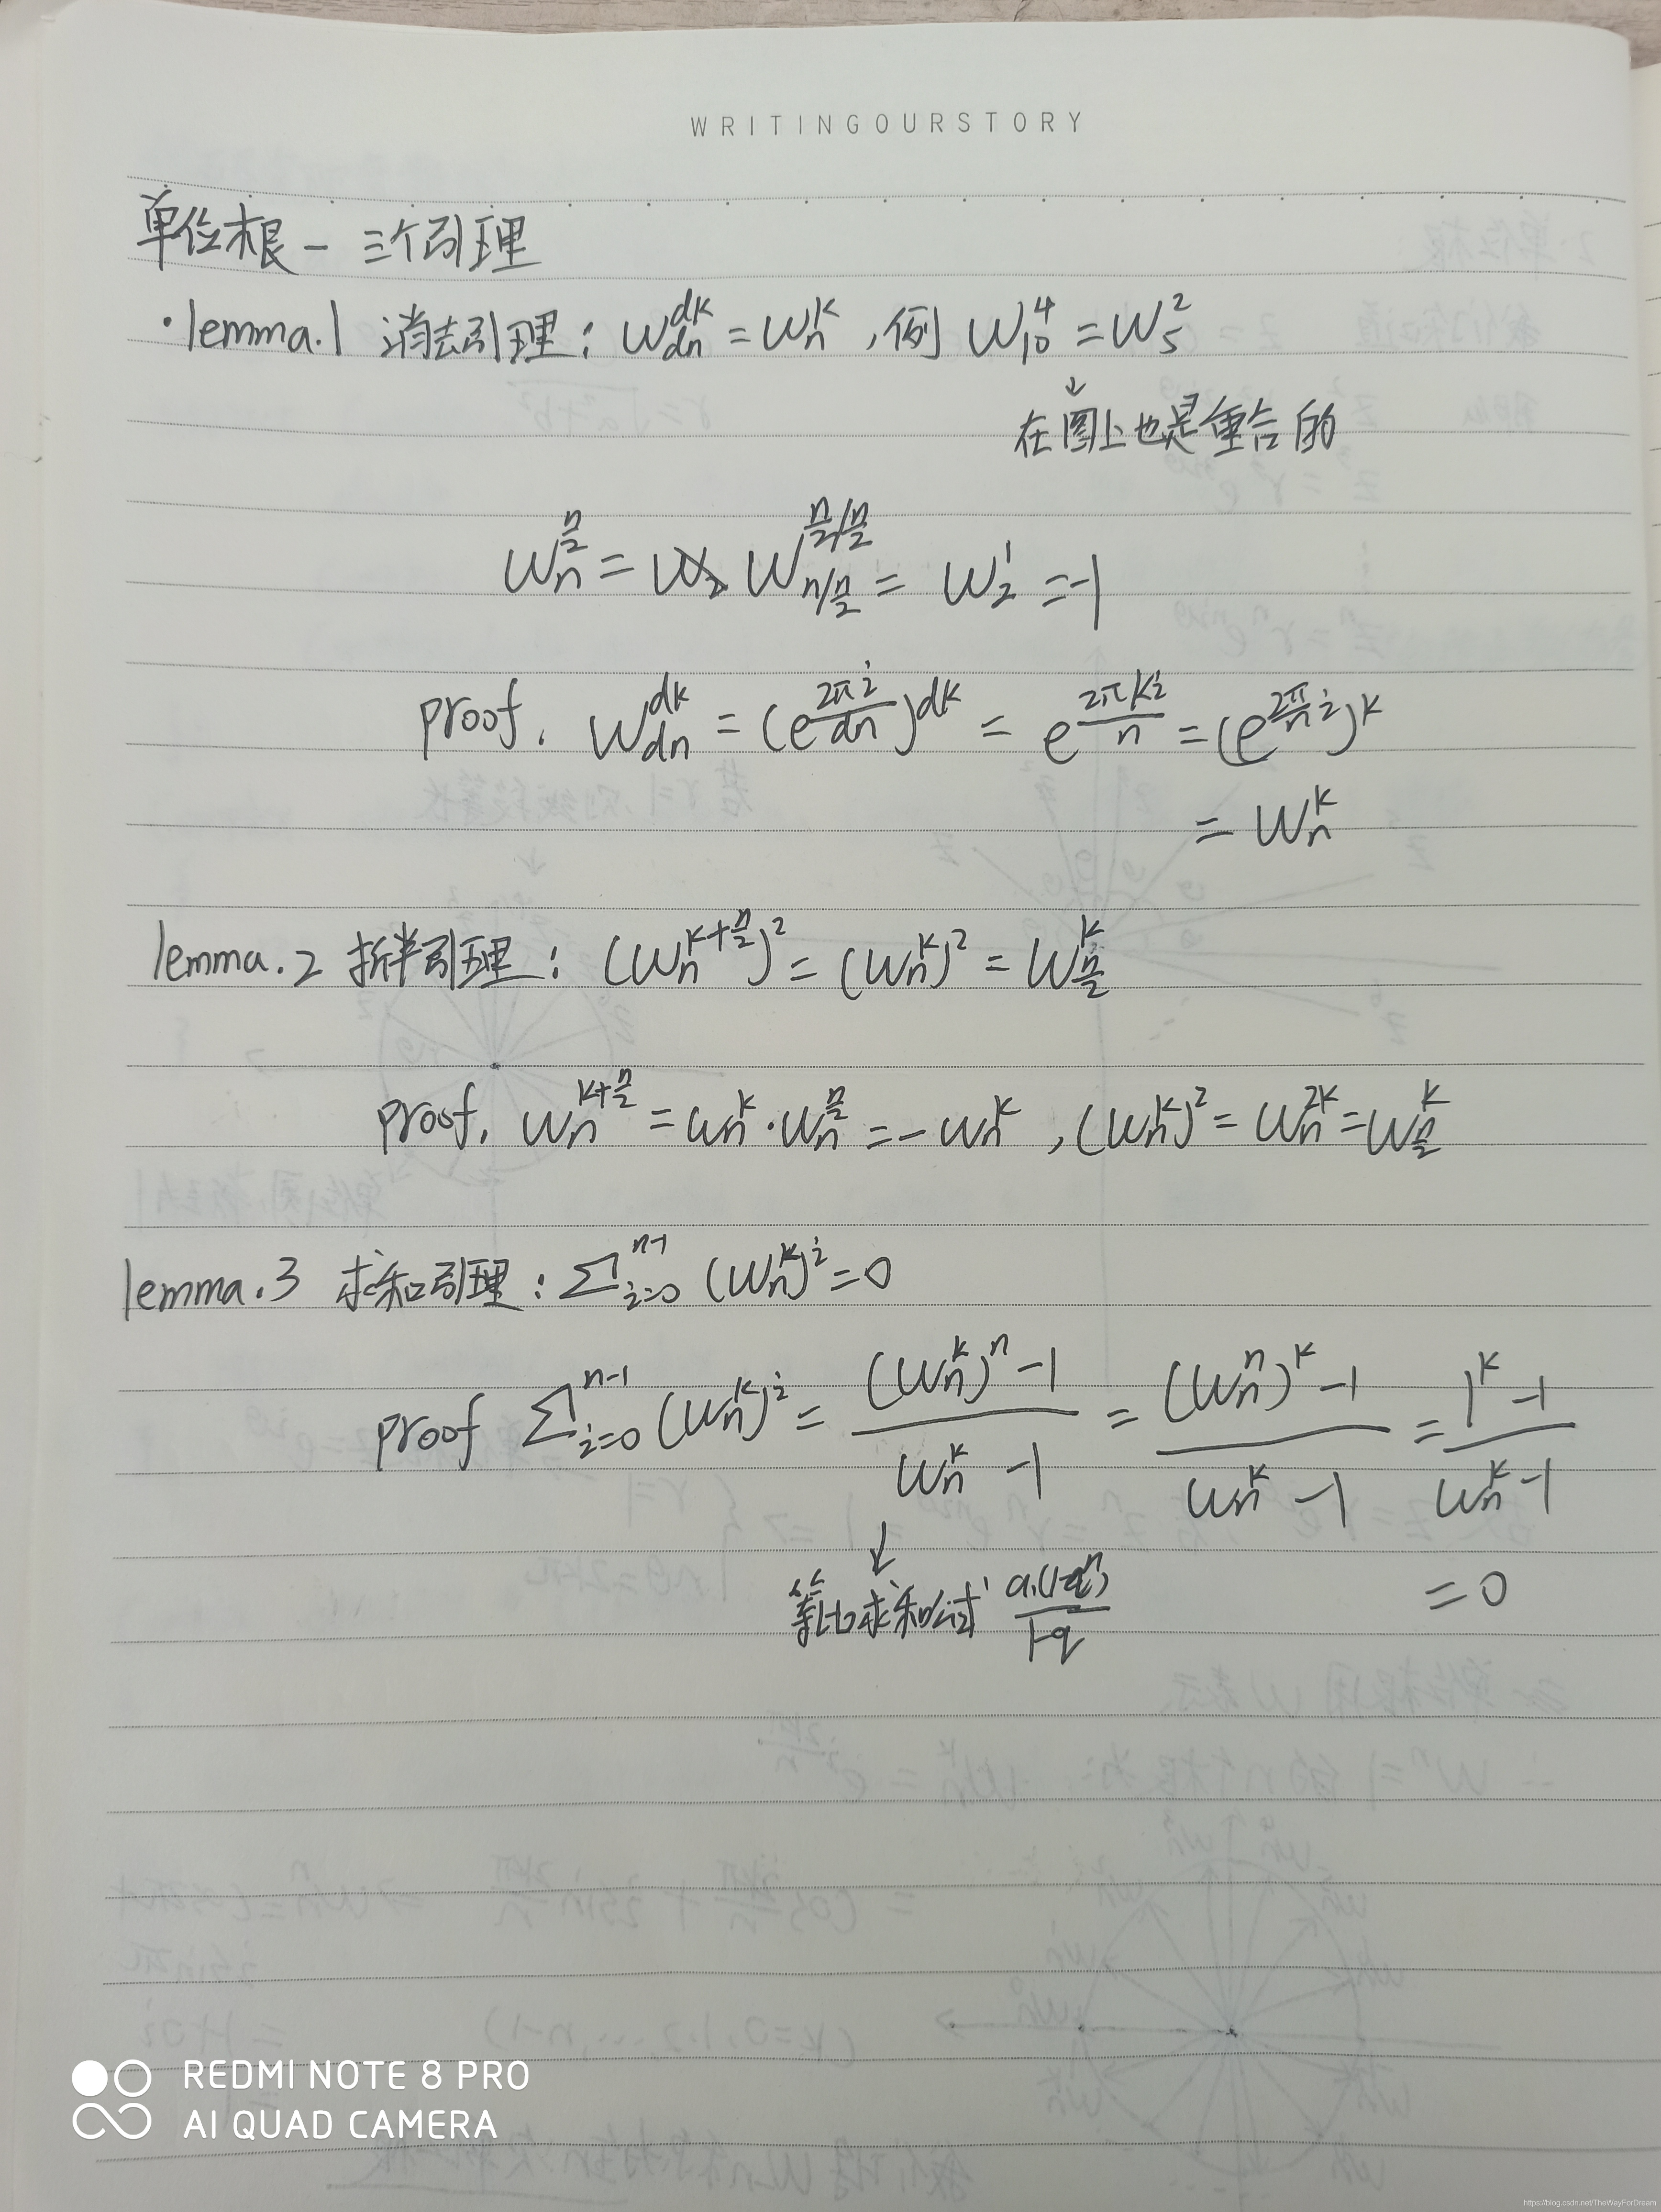 WRITINGOURSTORY
单位根 — 三个引理
·lemma.1 消去引理: W_{dn}^{dk} = W_n^k ,例 W_{10}^4 = W_5^2
↓
在图上也是重合的
W_n^{\frac{n}{2}} = W_{n/\frac{n}{2}}^{\frac{n}{2}/\frac{n}{2}} = W_2^1 = -1
proof. W_{dn}^{dk} = (e^{\frac{2πi}{dn}})^{dk} = e^{\frac{2πki}{n}} = (e^{\frac{2π}{n}i})^k
= W_n^k
lemma.2 折半引理: (W_n^{k+\frac{n}{2}})^2 = (W_n^k)^2 = W_{\frac{n}{2}}^k
proof. W_n^{k+\frac{n}{2}} = W_n^k · W_n^{\frac{n}{2}} = -W_n^k , (W_n^k)^2 = W_n^{2k} = W_{\frac{n}{2}}^k
lemma.3 求和引理: Σ_{i=0}^{n-1} (W_n^k)^i = 0
proof Σ_{i=0}^{n-1} (W_n^k)^i = \frac{(W_n^k)^n - 1}{W_n^k - 1} = \frac{(W_n^n)^k - 1}{W_n^k - 1} = \frac{1^k - 1}{W_n^k - 1}
↓
等比求和公式 \frac{a_1(1-q^n)}{1-q}
= 0
REDMI NOTE 8 PRO
AI QUAD CAMERA
https://blog.csdn.net/TheWayForDream